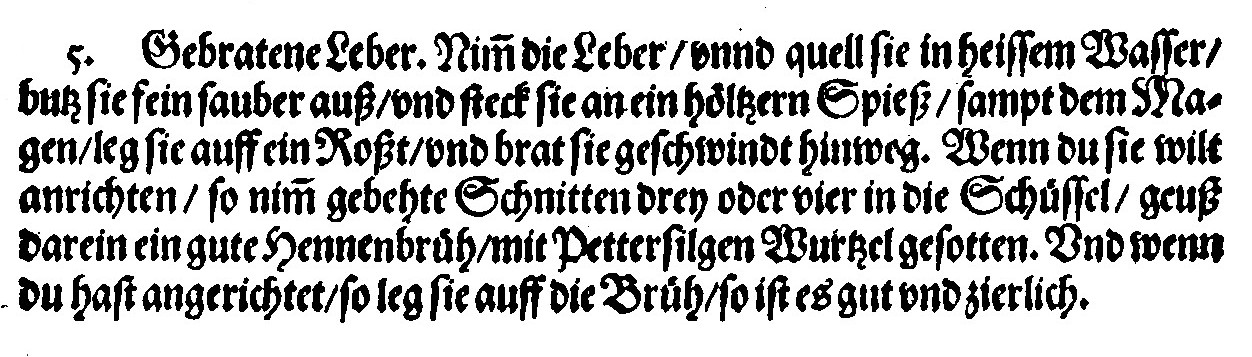 5. Gebratene Leber. Nim̃ die Leber / vnnd quell sie in heissem Wasser /
butz sie fein sauber auß / vnd steck sie an ein höltzern Spieß / sampt dem Ma-
gen / leg sie auff ein Roßt / vnd brat sie geschwindt hinweg. Wenn du sie wilt
anrichten / so nim̃ gebehte Schnitten drey oder vier in die Schüssel / geuß
darein ein gute Hennenbrüh / mit Pettersilgen Wurtzel gesotten. Vnd wenn
du hast angerichtet / so leg sie auff die Brüh / so ist es gut vnd zierlich.